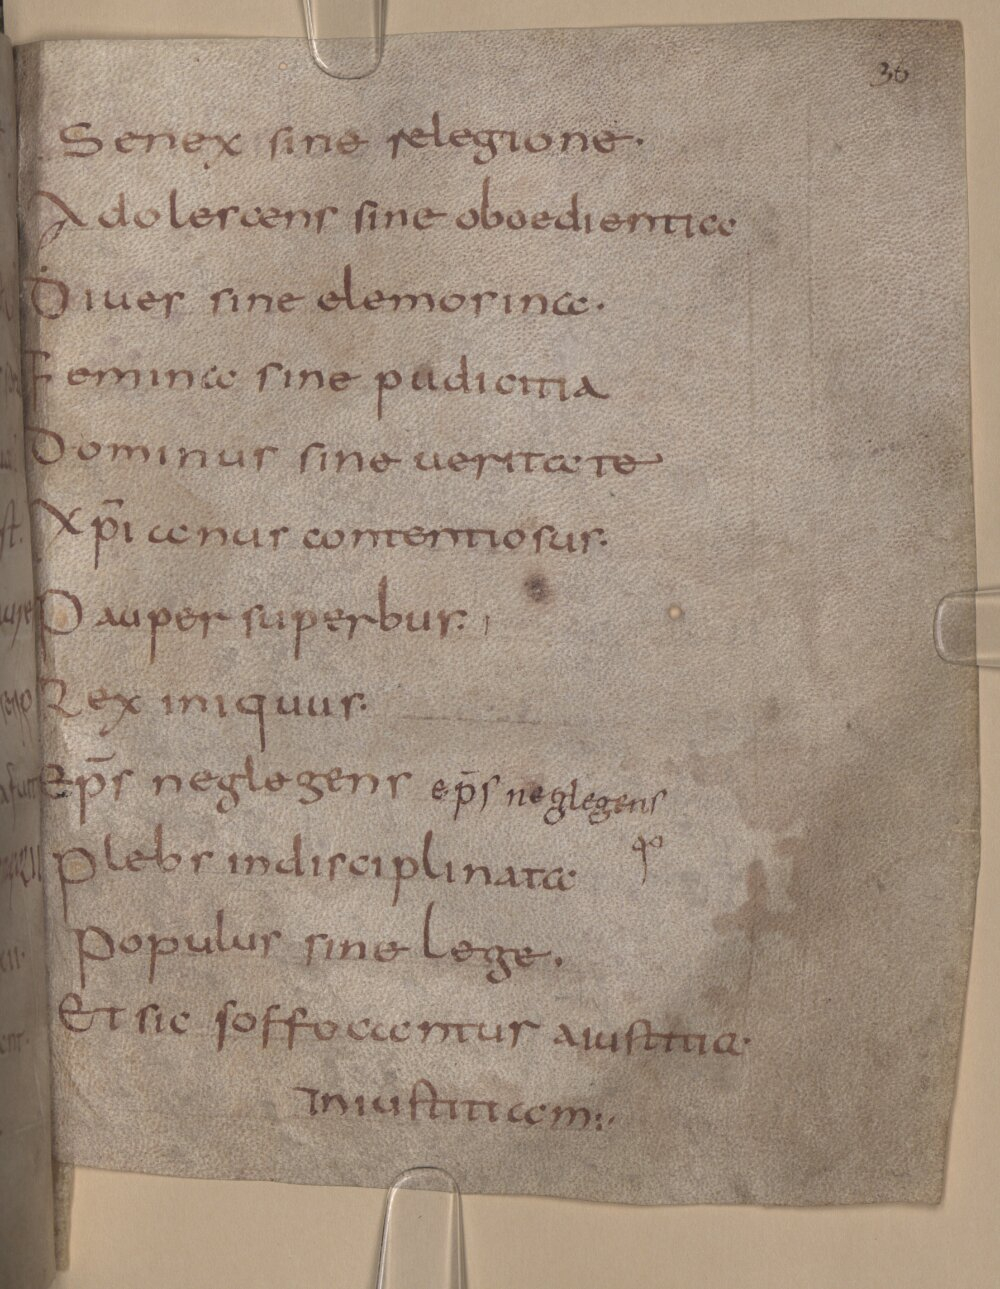 36
Senex sine relegione.
Adolescens sine oboedientia
Diues sine elemosina.
Femina sine pudicitia
Dominus sine ueritate
Xp̄ianus contentiosus.
Pauper superbus.
Rex iniquus.
Ep̄s neglegens ep̄s neglegens
Plebs indisciplinata
Populus sine lege.
Et sic soffocantur a iustitia
Iniustitiam